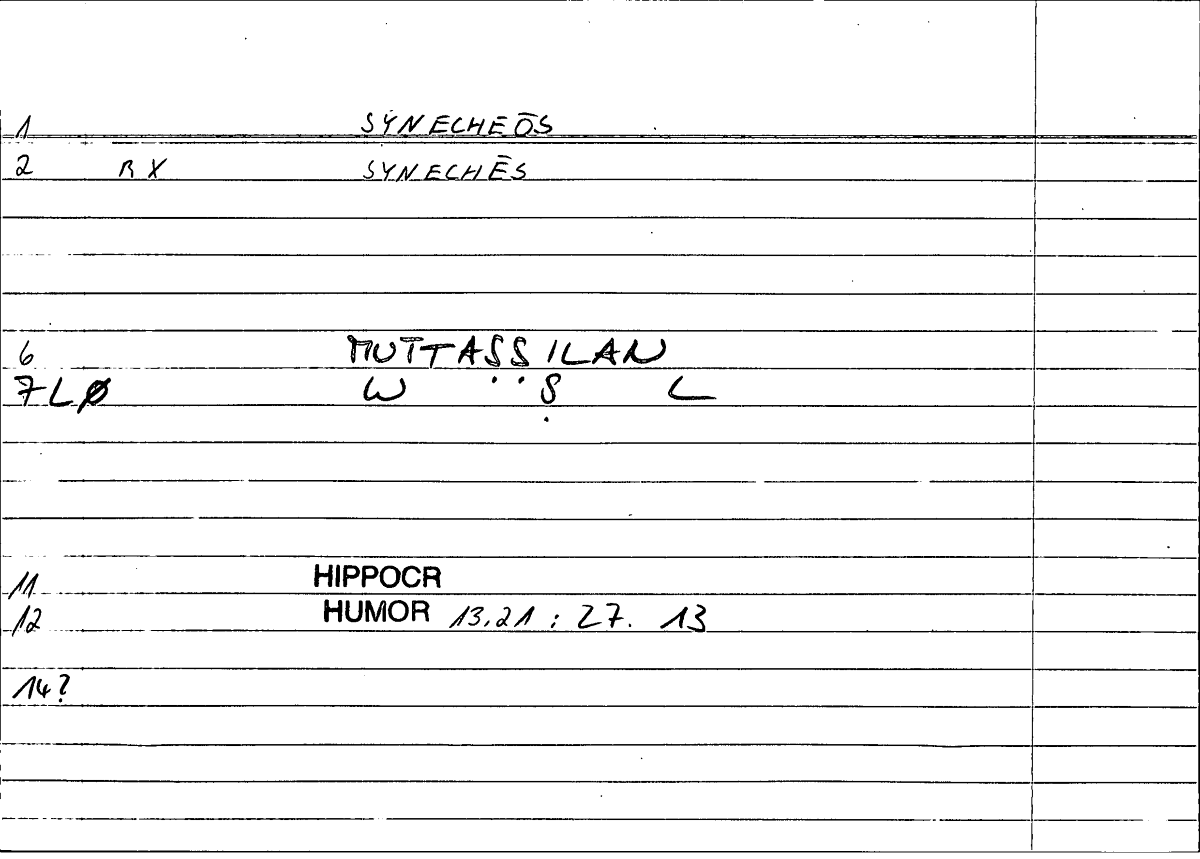 1 SYNECHEŌS
2 RX SYNECHĒS
6 MUTTAṢṢILAN
7LØ W Ṣ L
11 HIPPOCR
12 HUMOR 13,21 ; 27. 13
14?